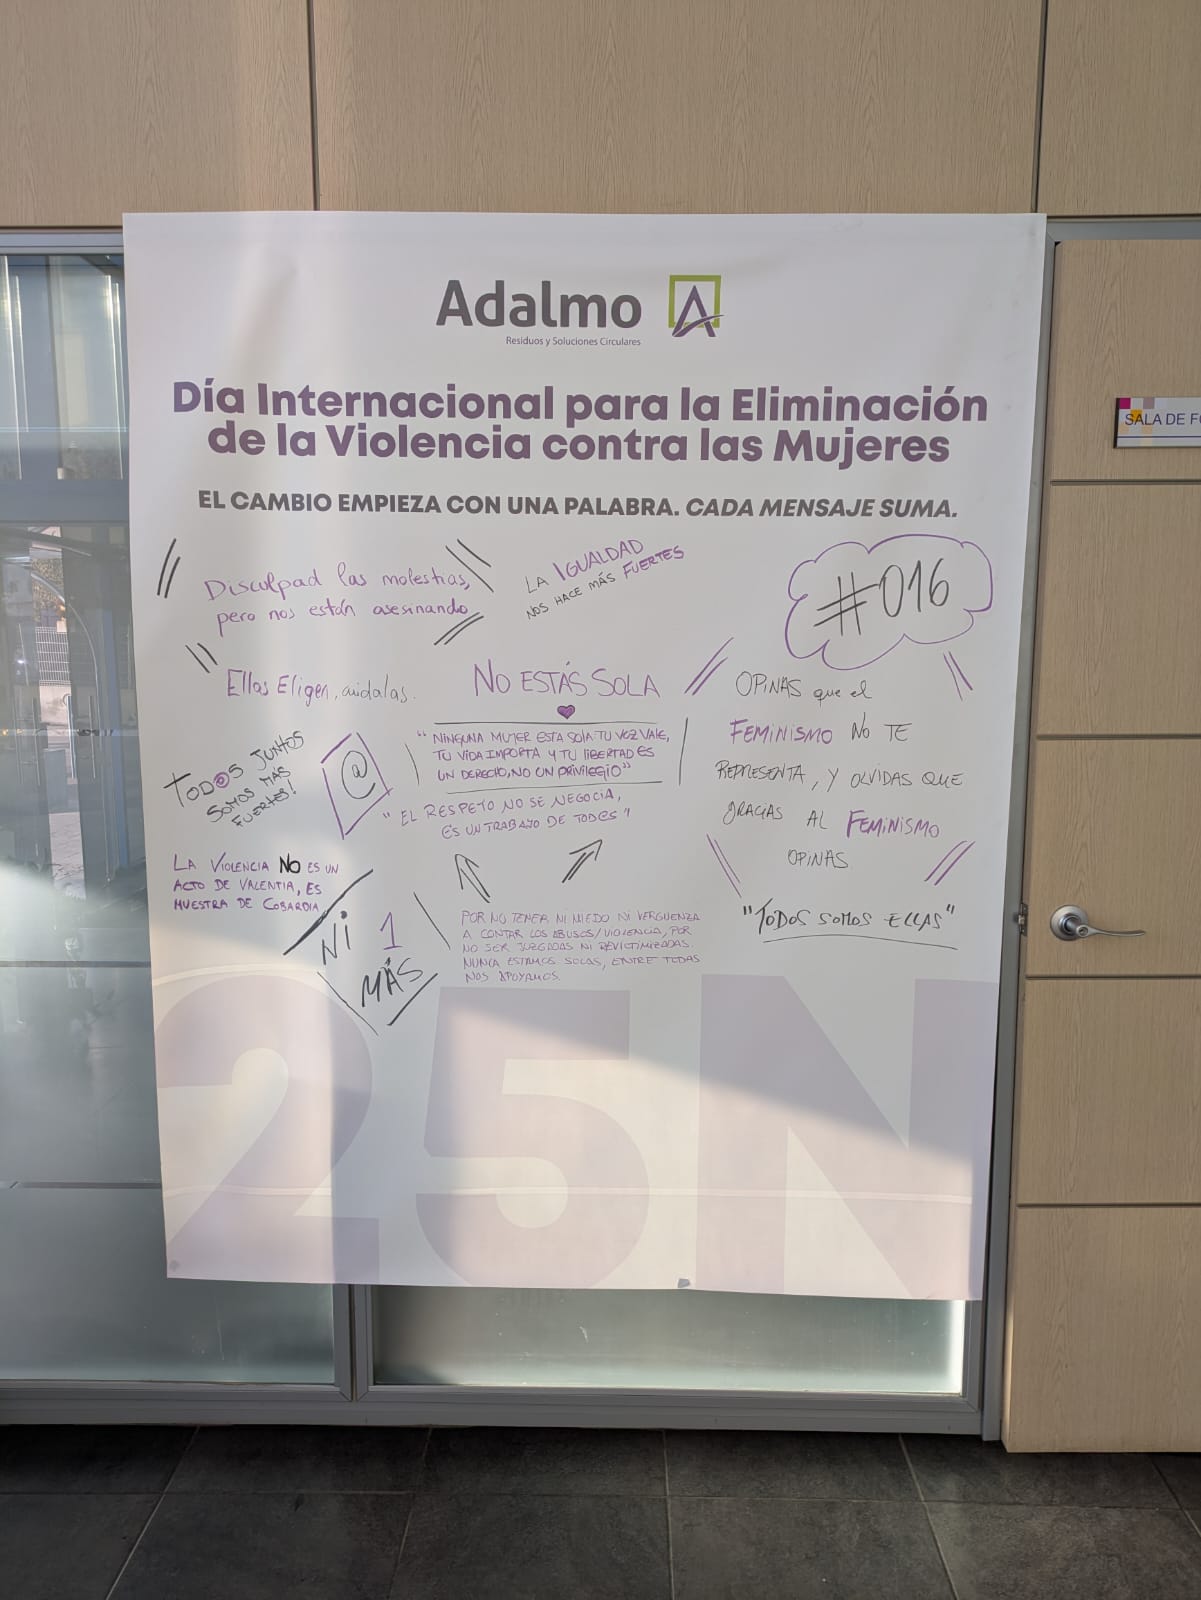 Adalmo
Residuos y Soluciones Circulares
Día Internacional para la Eliminación
de la Violencia contra las Mujeres
EL CAMBIO EMPIEZA CON UNA PALABRA. CADA MENSAJE SUMA.
SALA DE
Disculpad las molestias,
pero nos están asesinando
LA IGUALDAD
NOS HACE MÁS FUERTES
#016
Ellas Eligen, cuidalas.
NO ESTÁS SOLA
"NINGUNA MUJER ESTA SOLA·TU VOZ VALE,
TU VIDA IMPORTA Y TU LIBERTAD ES
UN DERECHO, NO UN PRIVILEGIO"
"EL RESPETO NO SE NEGOCIA,
ES UN TRABAJO DE TODES"
OPINAS que el
FEMINISMO NO TE
REPRESENTA, Y OLVIDAS QUE
GRACIAS AL FEMINISMO
OPINAS
TODOS JUNTOS
SOMOS MÁS
FUERTES!
@
LA VIOLENCIA NO ES UN
ACTO DE VALENTIA, ES
MUESTRA DE COBARDIA
NI 1
MÁS
POR NO TENER NI MIEDO NI VERGUENZA
A CONTAR LOS ABUSOS/VIOLENCIA, POR
NO SER JUZGADAS NI REVICTIMIZADAS.
NUNCA ESTAMOS SOLAS, ENTRE TODAS
NOS APOYAMOS.
"TODOS SOMOS ELLAS"
25N